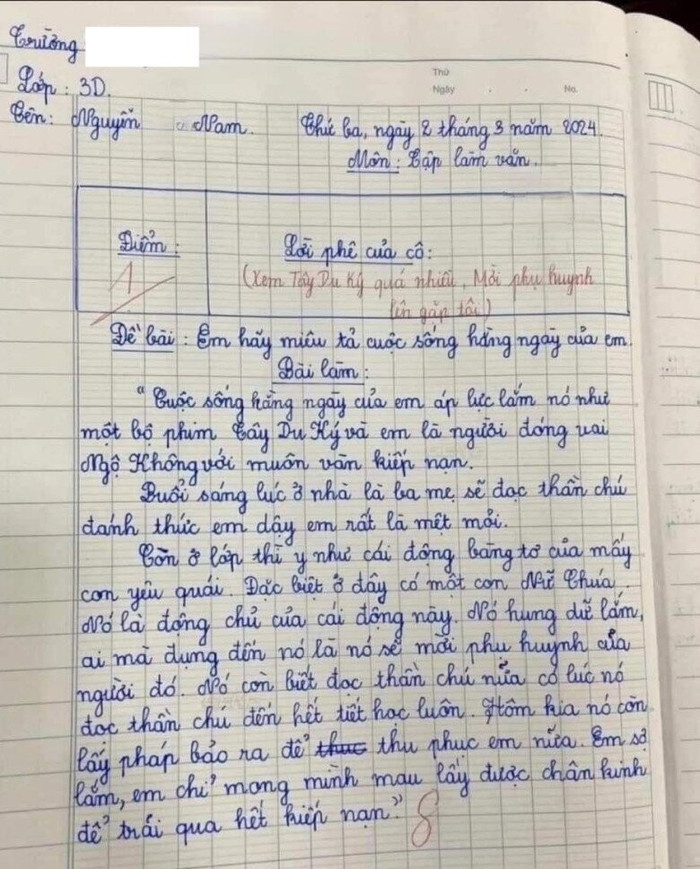 Trường
Lớp : 3D.
Tên : Nguyễn Nam.
Thứ
Ngày . . No.
Thứ ba, ngày 2 tháng 3 năm 2024.
Môn : Tập làm văn.
Điểm :
1
Lời phê của cô :
(Xem Tây Du Ký quá nhiều, Mời phụ huynh
lên gặp tôi)
Đề bài : Em hãy miêu tả cuộc sống hằng ngày của em.
Bài làm :
“Cuộc sống hằng ngày của em áp lực lắm nó như
một bộ phim Tây Du Ký và em là người đóng vai
Ngộ Không với muôn vàn kiếp nạn.
Buổi sáng lúc ở nhà là ba mẹ sẽ đọc thần chú
đánh thức em dậy em rất là mệt mỏi.
Còn ở lớp thì y như cái động bàng tơ của mấy
con yêu quái. Đặc biệt ở đây có một con Nữ Chúa.
Nó là động chủ của cái động này. Nó hung dữ lắm,
ai mà đụng đến nó là nó sẽ mời phụ huynh của
người đó. Nó còn biết đọc thần chú nữa có lúc nó
đọc thần chú đến hết tiết học luôn. Hôm kia nó còn
lấy pháp bảo ra để thuc thu phục em nữa. Em sợ
lắm, em chỉ mong mình mau lấy được chân kinh
để trải qua hết kiếp nạn.”